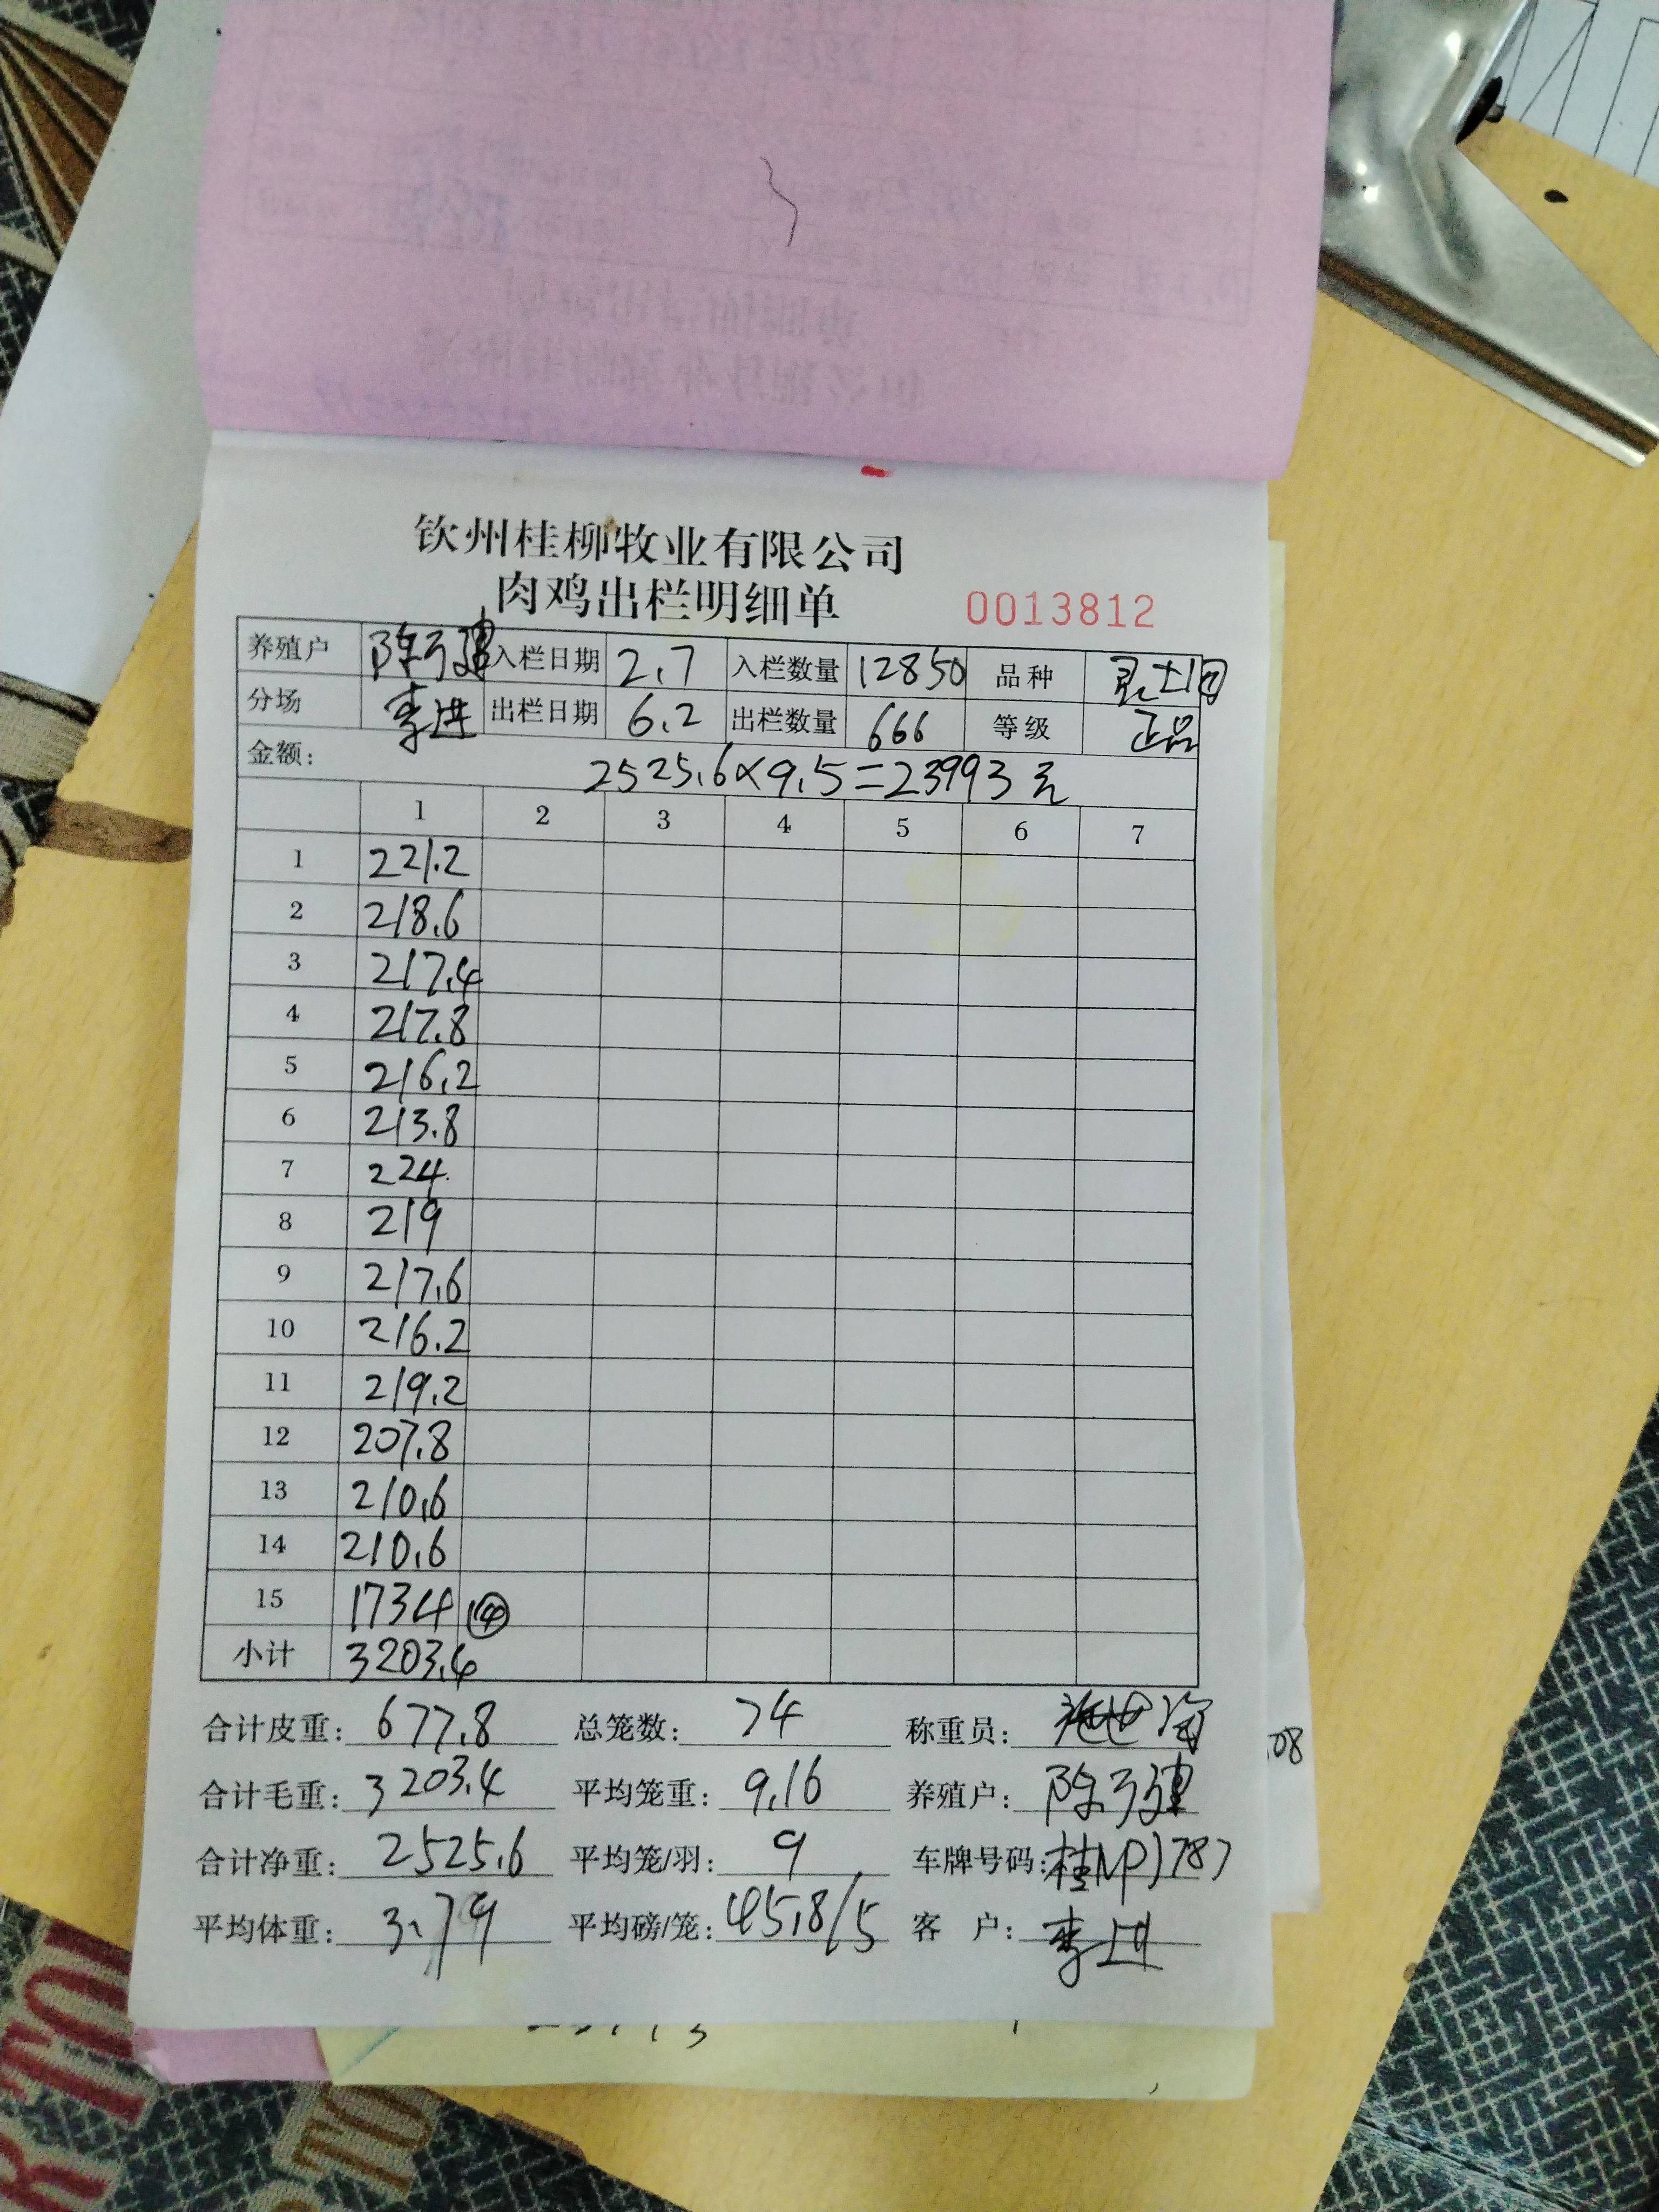 钦州桂柳牧业有限公司
肉鸡出栏明细单 0013812
养殖户 入栏日期 2.7 入栏数量 12850 品种
分场 李进 出栏日期 6.2 出栏数量 666 等级 正品
金额: 2525.6×9.5=23993元
1 2 3 4 5 6 7
1 221.2
2 218.6
3 217.4
4 217.8
5 216.2
6 213.8
7 224
8 219
9 217.6
10 216.2
11 219.2
12 207.8
13 210.6
14 210.6
15 173.4 ④
小计 3203.4
合计皮重: 677.8 总笼数: 74 称重员:
合计毛重: 3203.4 平均笼重: 9.16 养殖户:
合计净重: 2525.6 平均笼/羽: 9 车牌号码:
平均体重: 3.79 平均磅/笼: 45.8/5 客 户:
.08